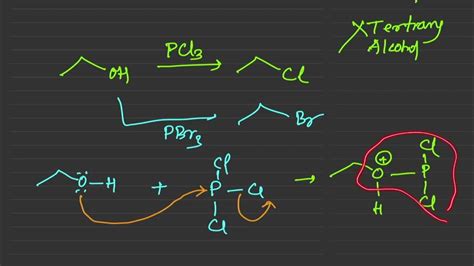 X Tertrany
Alcohol
OH PCl3 Cl
PBr3 Br
Ö-H + P Cl Cl Cl → O ⊕ H P Cl Cl